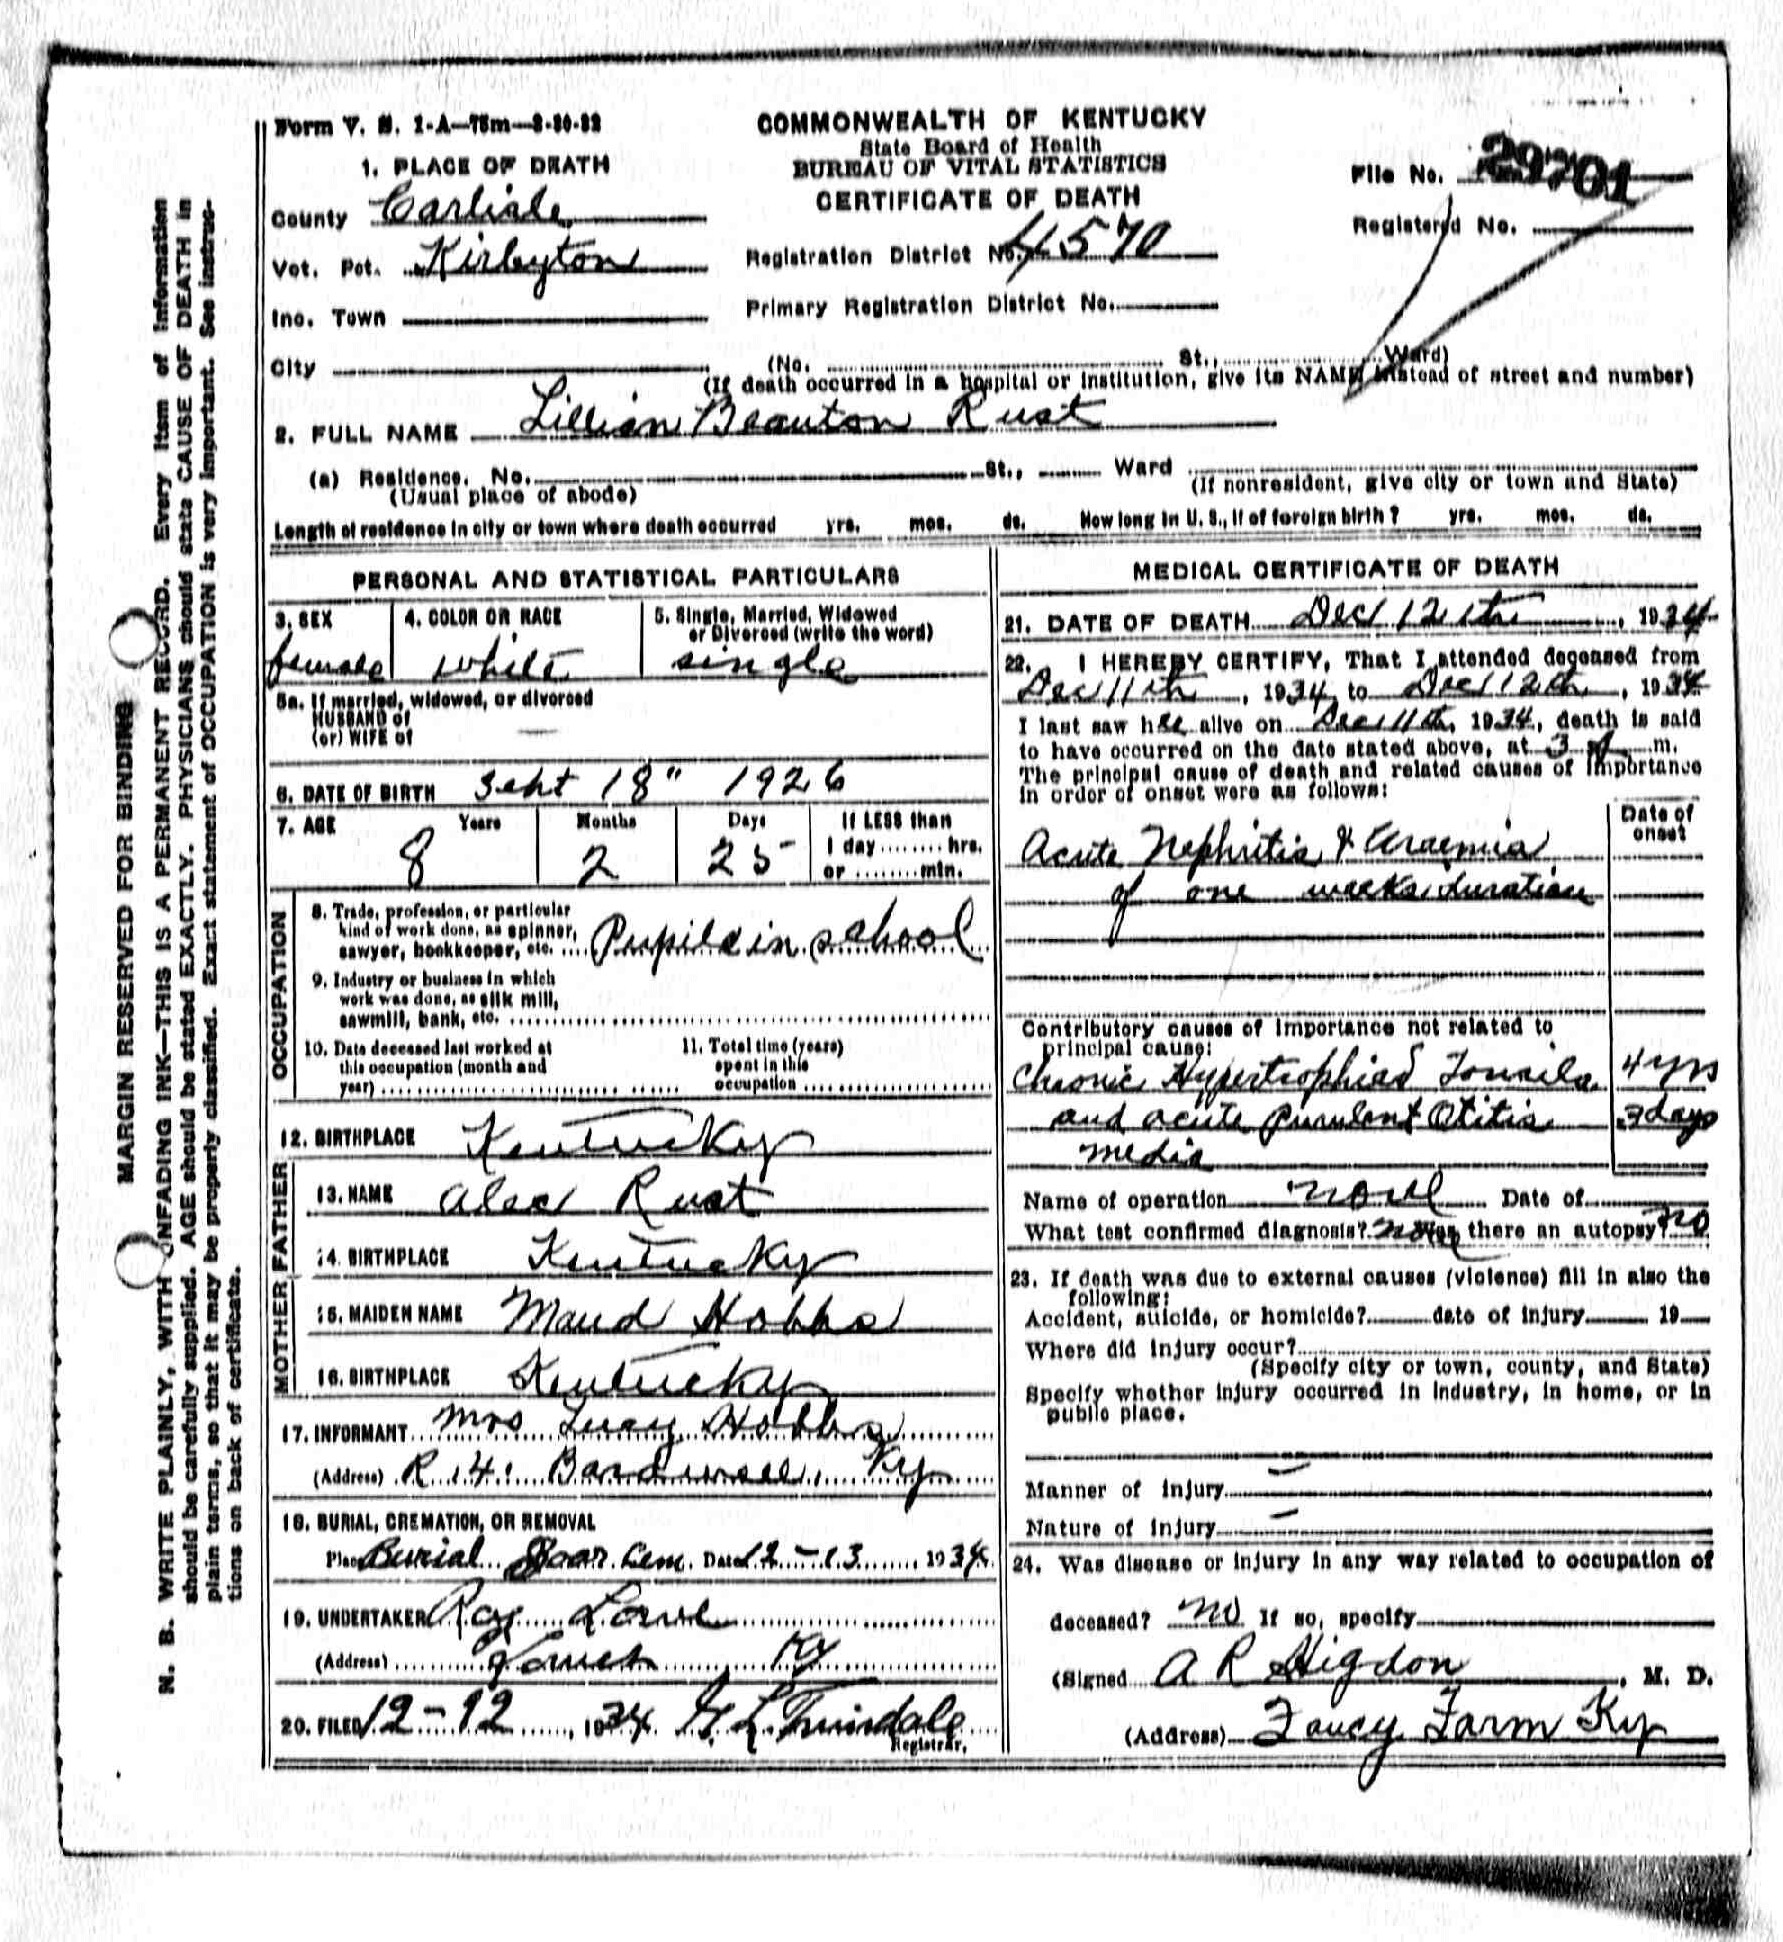 Form V. S. 1-A—75m—8-30-32
COMMONWEALTH OF KENTUCKY
State Board of Health
BUREAU OF VITAL STATISTICS
CERTIFICATE OF DEATH
File No. 29701
Registered No.
1. PLACE OF DEATH
County Carlisle
Vot. Pct. Kirbyton
Inc. Town
City
Registration District No. 4570
Primary Registration District No.
(No. St., Ward)
(If death occurred in a hospital or institution, give its NAME instead of street and number)
2. FULL NAME Lillian Beauton Rust
(a) Residence. No. St., Ward
(Usual place of abode)
(If nonresident, give city or town and State)
Length of residence in city or town where death occurred yrs. mos. ds. How long in U. S., if of foreign birth? yrs. mos. ds.
PERSONAL AND STATISTICAL PARTICULARS
3. SEX
female
4. COLOR OR RACE
white
5. Single, Married, Widowed
or Divorced (write the word)
single
5a. If married, widowed, or divorced
HUSBAND of
(or) WIFE of —
6. DATE OF BIRTH Sept 18" 1926
7. AGE Years Months Days If LESS than
8 2 25 1 day ........ hrs.
or ........ min.
OCCUPATION
8. Trade, profession, or particular
kind of work done, as spinner,
sawyer, bookkeeper, etc. Pupile in school
9. Industry or business in which
work was done, as silk mill,
sawmill, bank, etc.
10. Date deceased last worked at
this occupation (month and
year)
11. Total time (years)
spent in this
occupation
12. BIRTHPLACE Kentucky
FATHER
13. NAME Alec Rust
14. BIRTHPLACE Kentucky
MOTHER
15. MAIDEN NAME Maud Hobbs
16. BIRTHPLACE Kentucky
17. INFORMANT Mrs Lucy Hobbs
(Address) R. 4. Bardwell, Ky
18. BURIAL, CREMATION, OR REMOVAL
Place Burial Cem. Date 12-13, 1934
19. UNDERTAKER Roy Lowe
(Address) Lowes Ky
20. FILED 12-12, 1934 L Trimdale
Registrar.
MEDICAL CERTIFICATE OF DEATH
21. DATE OF DEATH Dec 12th, 1934
22. I HEREBY CERTIFY, That I attended deceased from
Dec 11th, 1934, to Dec 12th, 1934
I last saw her alive on Dec 11th, 1934, death is said
to have occurred on the date stated above, at 3 A m.
The principal cause of death and related causes of importance
in order of onset were as follows:
Date of
onset
Acute Nephritis & Uraemia
of one weeks duration
Contributory causes of importance not related to
principal cause:
Chronic Hypertrophied Tonsils 4 yrs
and acute purulent Otitis 3 days
media
Name of operation none Date of
What test confirmed diagnosis? none Was there an autopsy? no
23. If death was due to external causes (violence) fill in also the
following:
Accident, suicide, or homicide? date of injury 19
Where did injury occur?
(Specify city or town, county, and State)
Specify whether injury occurred in industry, in home, or in
public place.
Manner of injury —
Nature of injury —
24. Was disease or injury in any way related to occupation of
deceased? no If so, specify
(Signed A R Higdon, M. D.
(Address) Fancy Farm Ky
MARGIN RESERVED FOR BINDING
N. B. WRITE PLAINLY, WITH UNFADING INK—THIS IS A PERMANENT RECORD. Every item of information
should be carefully supplied. AGE should be stated EXACTLY. PHYSICIANS should state CAUSE OF DEATH in
plain terms, so that it may be properly classified. Exact statement of OCCUPATION is very important. See instruc-
tions on back of certificate.